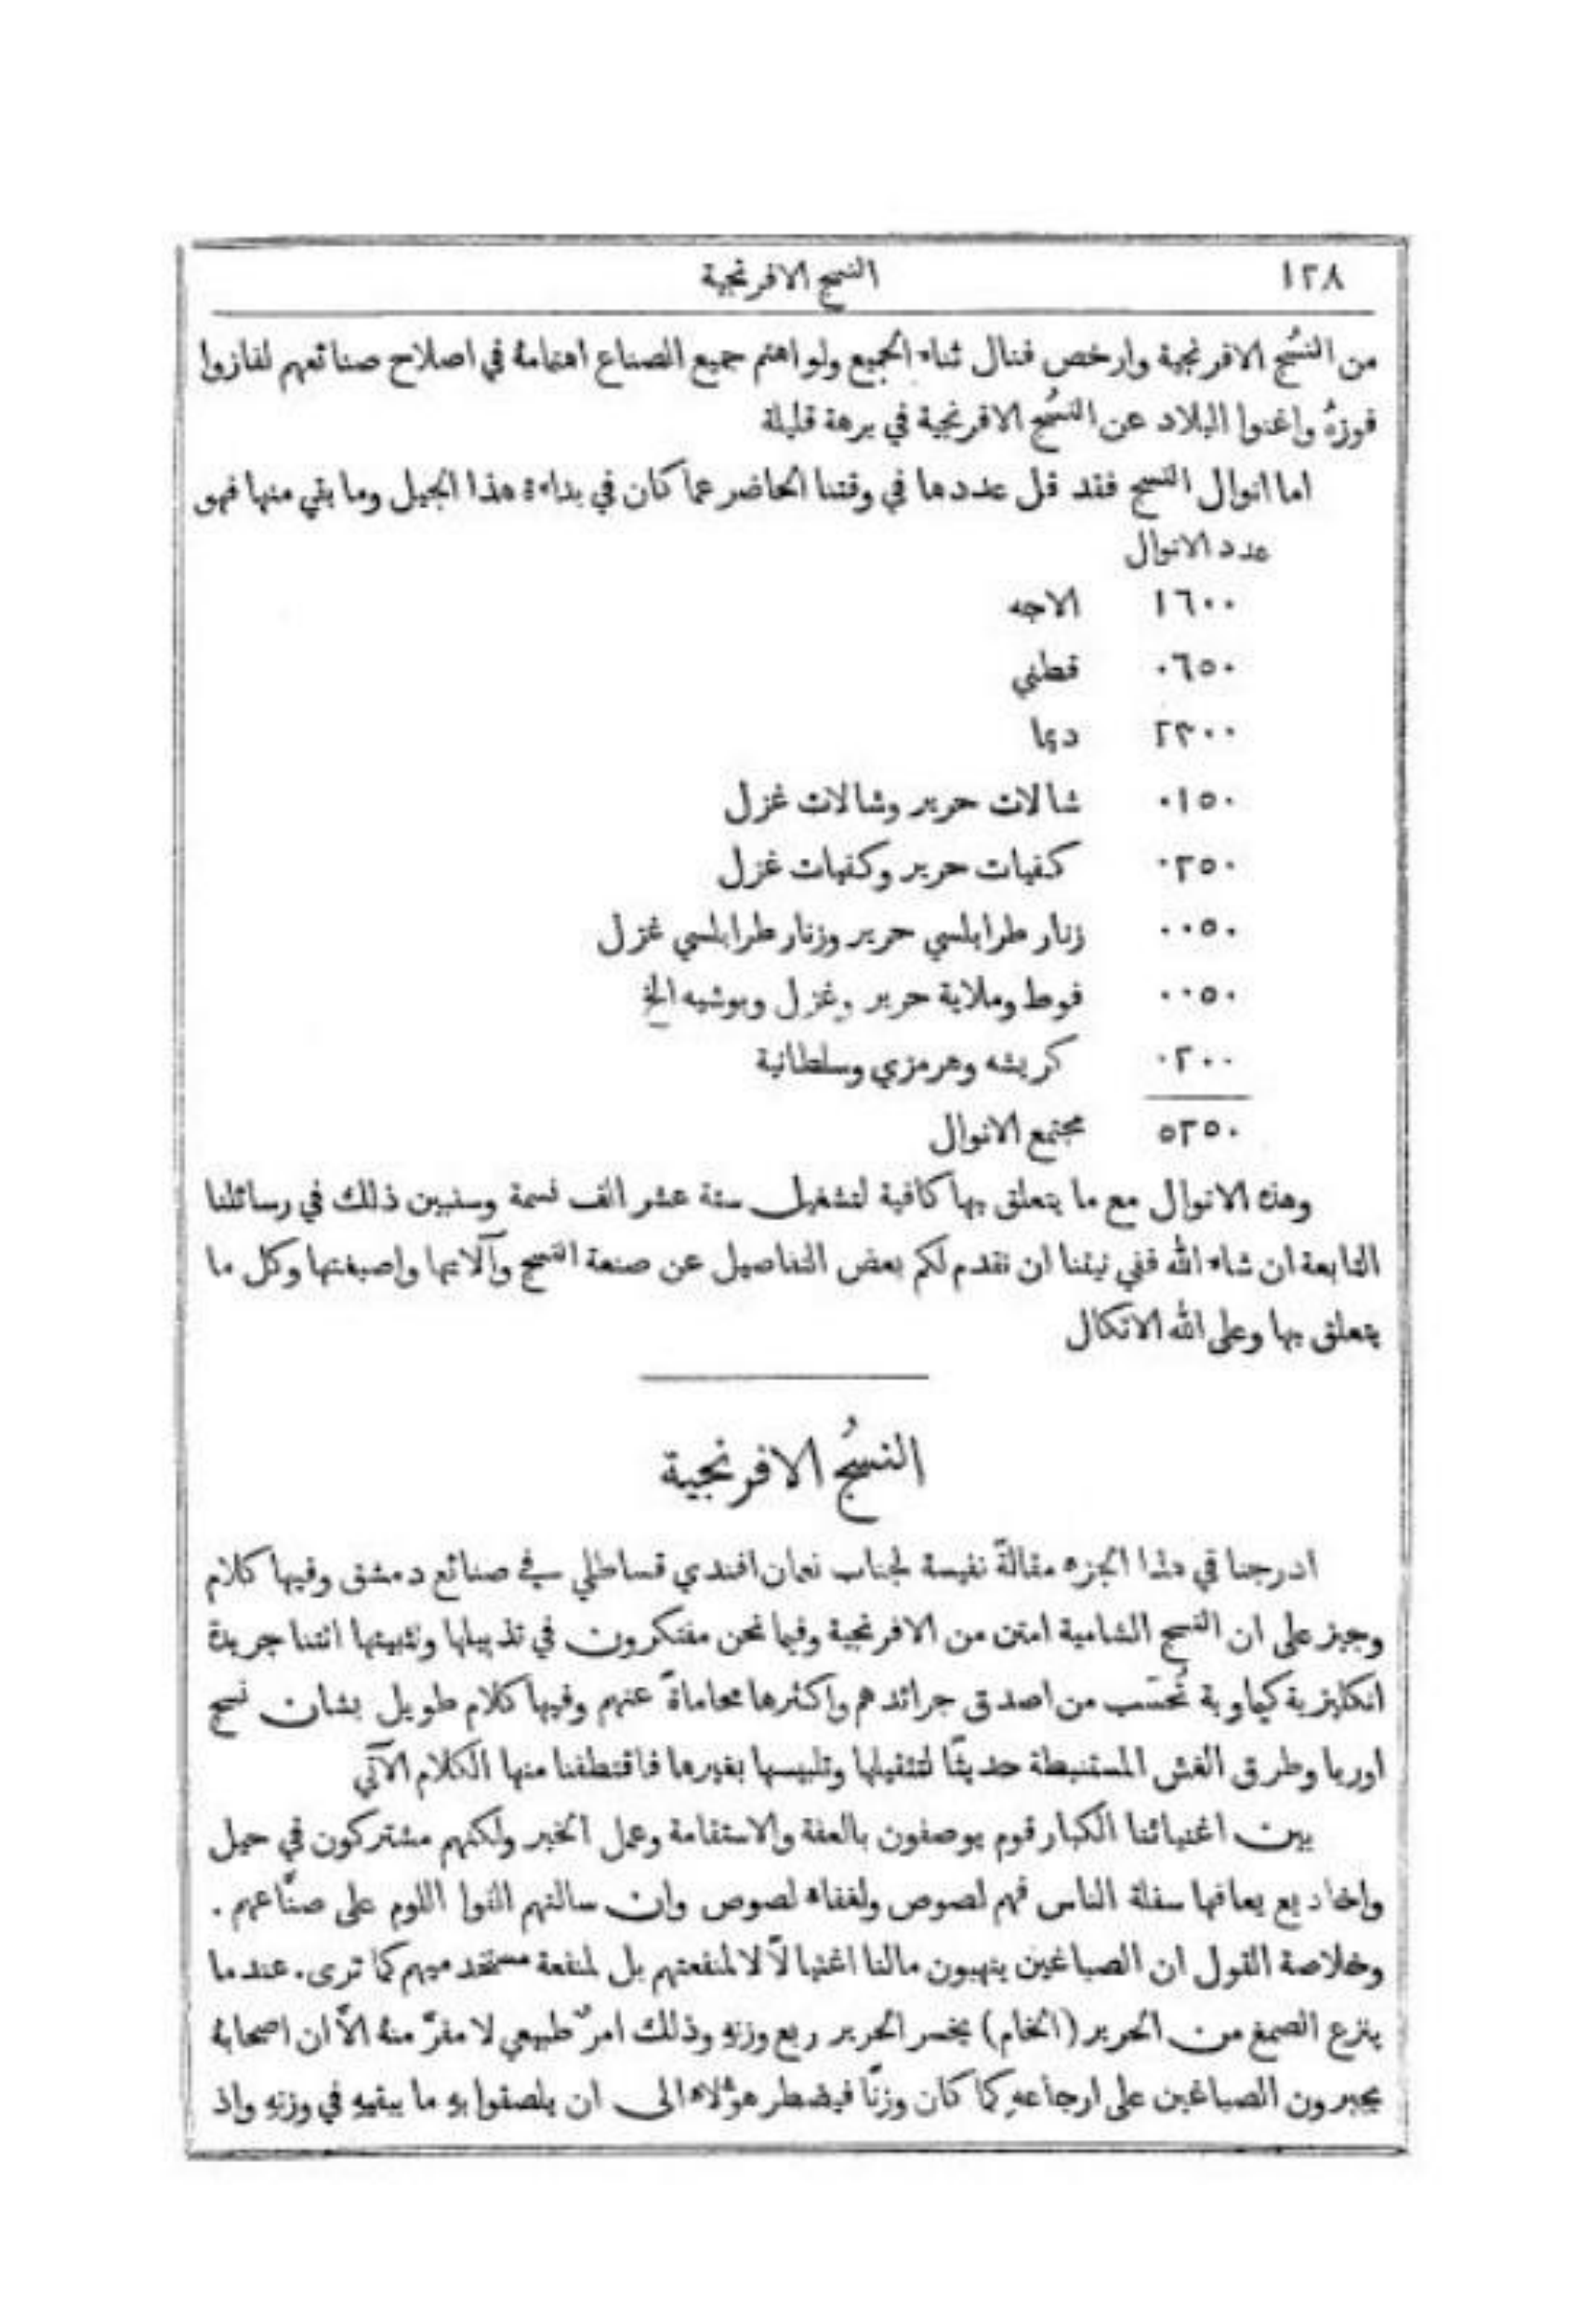 ١٢٨ النسج الافرنجية
من النسُج الافرنجية وارخص فنال ثناء الجميع ولو اهتم جميع الصناع اهتمامهُ في اصلاح صنائعهم لفازوا
فوزهُ واغنوا البلاد عن النسُج الافرنجية في برهة قليلة
اما انوال النسج فقد قل عددها في وقتنا الحاضر عما كان في بداءة هذا الجيل وما بقي منها فهو
عدد الانوال
١٦٠٠ الاجه
٠٦٥٠ قطني
٢٣٠٠ ديما
٠١٥٠ شالات حرير وشالات غزل
٠٢٥٠ كفيات حرير وكفيات غزل
٠٠٥٠ زنار طرابلسي حرير وزنار طرابلسي غزل
٠٠٥٠ فوط وملاية حرير وغزل وبوشيه الخ
٠٢٠٠ كريشه وهرمزي وسلطانية
٥٢٥٠ مجتمع الانوال
وهذه الانوال مع ما يتعلق بها كافية لتشغيل ستة عشر الف نسمة وسنبين ذلك في رسائلنا
التابعة ان شاء الله ففي نيتنا ان نقدم لكم بعض التفاصيل عن صنعة النسج وآلاتها واصبغتها وكل ما
يتعلق بها وعلى الله الاتكال
النسُج الافرنجية
ادرجنا في هذا الجزء مقالةً نفيسة لجناب نعمان افندي قساطلي في صنائع دمشق وفيها كلام
وجيز على ان النسج الشامية امتن من الافرنجية وفيما نحن مفتكرون في تذييلها وتثبيتها اتتنا جريدة
انكليزية كيماوية تُحسَب من اصدق جرائدهم واكثرها محاماةً عنهم وفيها كلام طويل بشان نسج
اوربا وطرق الغش المستنبطة حديثًا لتثقيلها وتلبيسها بغيرها فاقتطفنا منها الكلام الآتي
بين اغنيائنا الكبار قوم يوصفون بالعفة والاستقامة وعمل الخير ولكنهم مشتركون في حيل
واخاديع يعافها سفلة الناس فهم لصوص ولفقاء لصوص وان سالتهم القوا اللوم على صنَّاعهم .
وخلاصة القول ان الصباغين ينهبون مالنا اغتيالاً لا لمنفعتهم بل لمنفعة مستخدميهم كما ترى . عندما
ينزع الصمغ من الحرير (الخام) يخسر الحرير ربع وزنهِ وذلك امرٌ طبيعي لا مفرَّ منهُ الَّا ان اصحابهُ
يجبرون الصباغين على ارجاعهِ كما كان وزنًا فيضطر هؤلاء الى ان يلصقوا بهِ ما يبقيهِ في وزنهِ واذ